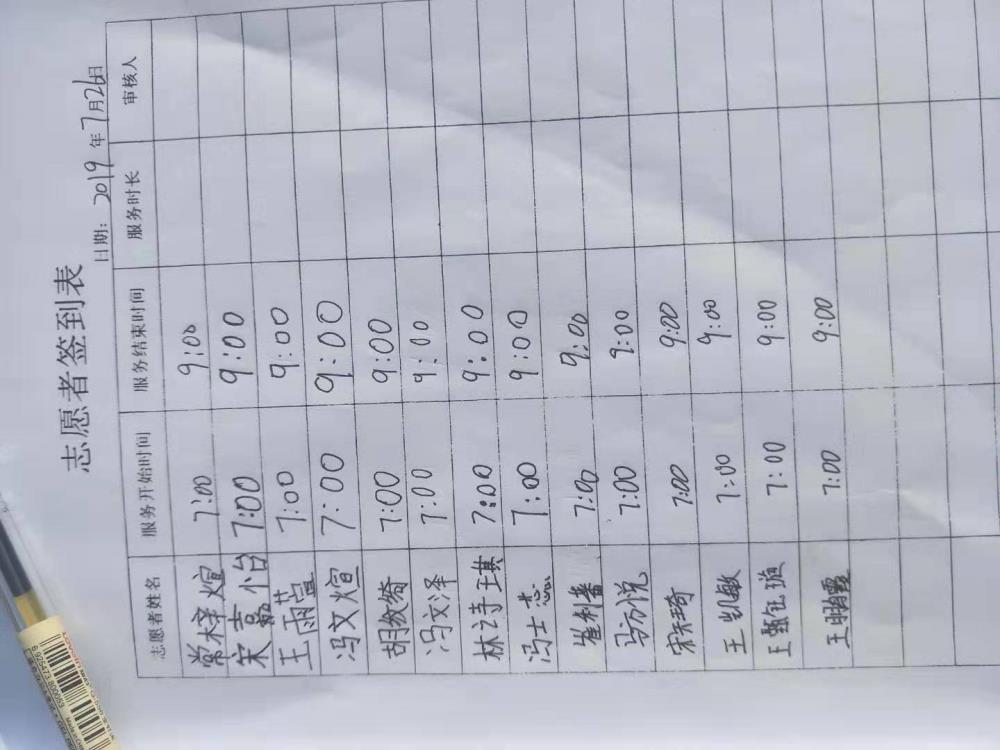 志愿者签到表
日期：2019年7月26日
志愿者姓名 服务开始时间 服务结束时间 服务时长 审核人
常梓煊 7:00 9:00
宋嘉怡 7:00 9:00
王雨萱 7:00 9:00
冯文煊 7:00 9:00
胡敏绮 7:00 9:00
冯文泽 7:00 9:00
林诗琪 7:00 9:00
冯士杰 7:00 9:00
崔利蕃 7:00 9:00
马悦 7:00 9:00
宋琦 7:00 9:00
王凯敏 7:00 9:00
甄璇 7:00 9:00
王鹏霞 7:00 9:00